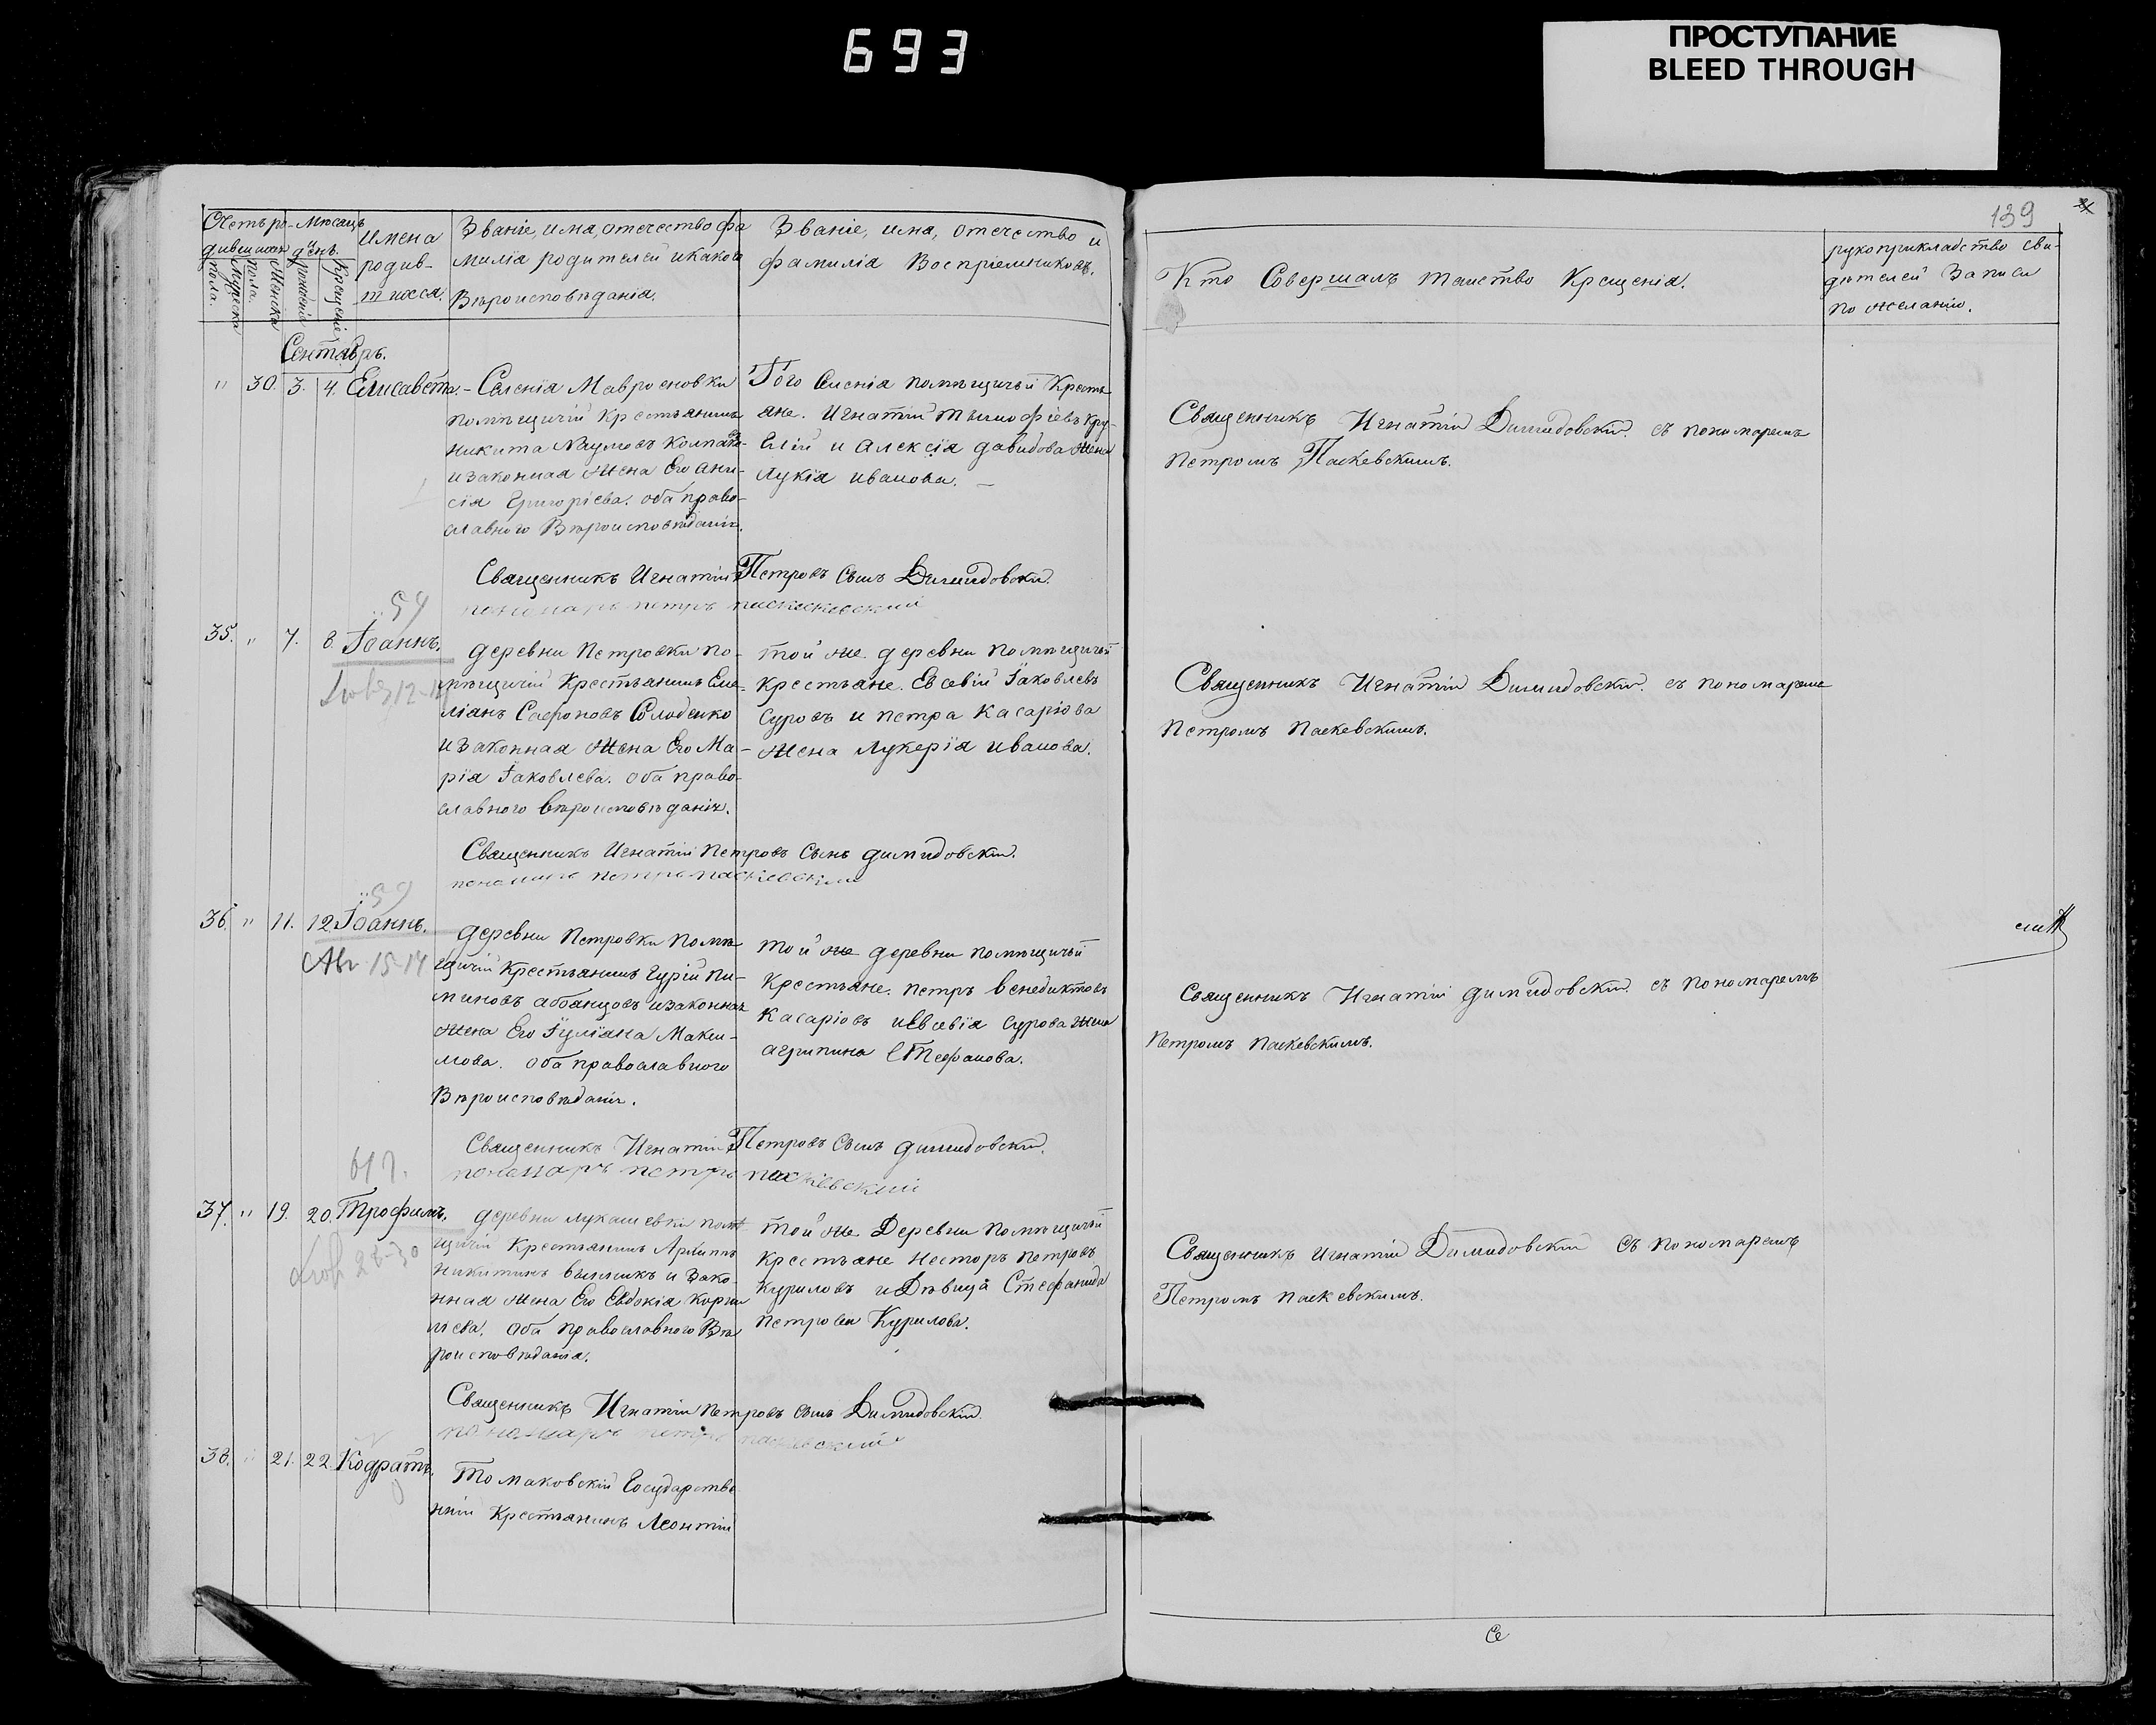 693
ПРОСТУПАНИЕ
BLEED THROUGH
Счетъ ро-
дившихся
Мужеска
пола.
Женска
пола.
Мѣсяцъ
и
день.
рожденія
Крещенія
Имена
родив-
шихся.
Званіе, имя, отечество фа
милія родителей и какова
Вѣроисповѣданія.
Званіе, имя, отечество и
фамилія Воспріемниковъ.
Кто Совершалъ таинство Крещенія.
139
рукоприкладство сви-
дѣтелей Записи
по желанію.
Сентябрь.
" 30. 3. 4. Елисавета.
Селенія Мавроеновки
помѣщичій Крестьянинъ
Никита Наумовъ
и законная жена Его Ани-
сія Григоріева. оба право-
славного Вѣроисповѣданія.
Того Селенія помѣщичьи Кресть
яне. Игнатій Тимофіевъ
и Алексія давидова жена
Лукія иванова.
Священникъ Игнатій Димидовскій. съ пономаремъ
Петромъ Паскевскимъ.
Священникъ Игнатій Петровъ Сынъ Димидовскій.
пономарь петръ
59
35. " 7. 8. Іоаннъ.
12-14
деревни Петровки по-
мѣщичій Крестьянинъ Еме-
ліанъ Сафроновъ Солоденко
и законная жена Его Ма-
рія Іаковлева. оба право-
славного вѣроисповѣданія.
той же деревни помѣщичьи
Крестьяне. Евсевій Іаковлевъ
Суровъ и петра Касаріова
жена Лукерія иванова.
Священникъ Игнатій Димидовскій. съ пономаремъ
Петромъ Паскевскимъ.
Священникъ Игнатій Петровъ Сынъ димидовскій.
59
36. " 11. 12. Іоаннъ.
Авг 15-14
деревни Петровки помѣ
щичій Крестьянинъ Гурій Пи-
миновъ и законная
жена Его Іуліана Макси-
мова. оба православного
Вѣроисповѣданія.
той же деревни помѣщичьи
Крестьяне. петръ венедиктовъ
Касаріовъ и Евсевія Сурова жена
агрипина Стефанова.
Священникъ Игнатій димидовскій. съ пономаремъ
Петромъ Паскевскимъ.
Священникъ Игнатій Петровъ Сынъ димидовскій.
пономарь петръ паскевский
61 г.
37. " 19. 20. Трофимъ.
деревни лукашевки помѣ
щичій Крестьянинъ Архипъ
никитинъ и зако-
нная жена Его Евдокія Корни
лієва. оба православного Вѣ
роисповѣданія.
той же Деревни помѣщичьи
крестьяне несторъ петровъ
Куриловъ и Дѣвица Стефанида
петрова Курилова.
Священникъ игнатій Димидовскій съ пономаремъ
Петромъ паскевскимъ.
Священникъ Игнатій петровъ сынъ Димидовскій.
пономарь петръ паскевский
38. " 21. 22. Кодратъ.
Томаковскій Государстве
нній Крестьянинъ Леонтій
Се